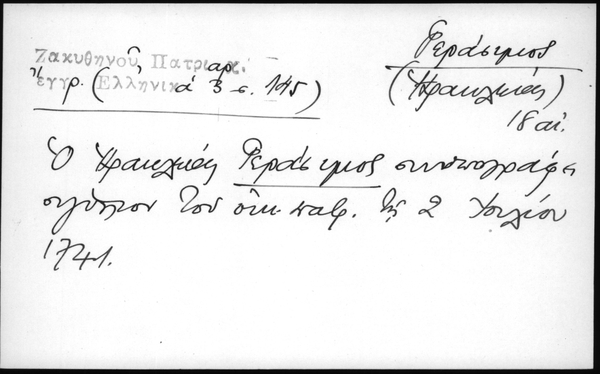 Ζακυθηνοῦ, Πατριαρ.
ἔγγρ. (Ἑλληνικὰ 3 σ. 145)
Γεράσιμος
(Ἡρακλείας)
18 αἰ.
Ὁ Ἡρακλείας Γεράσιμος συνυπογράφει
σιγίλλιον τοῦ οἰκ. πατρ. τῇ 2 Ἰουλίου
1741.